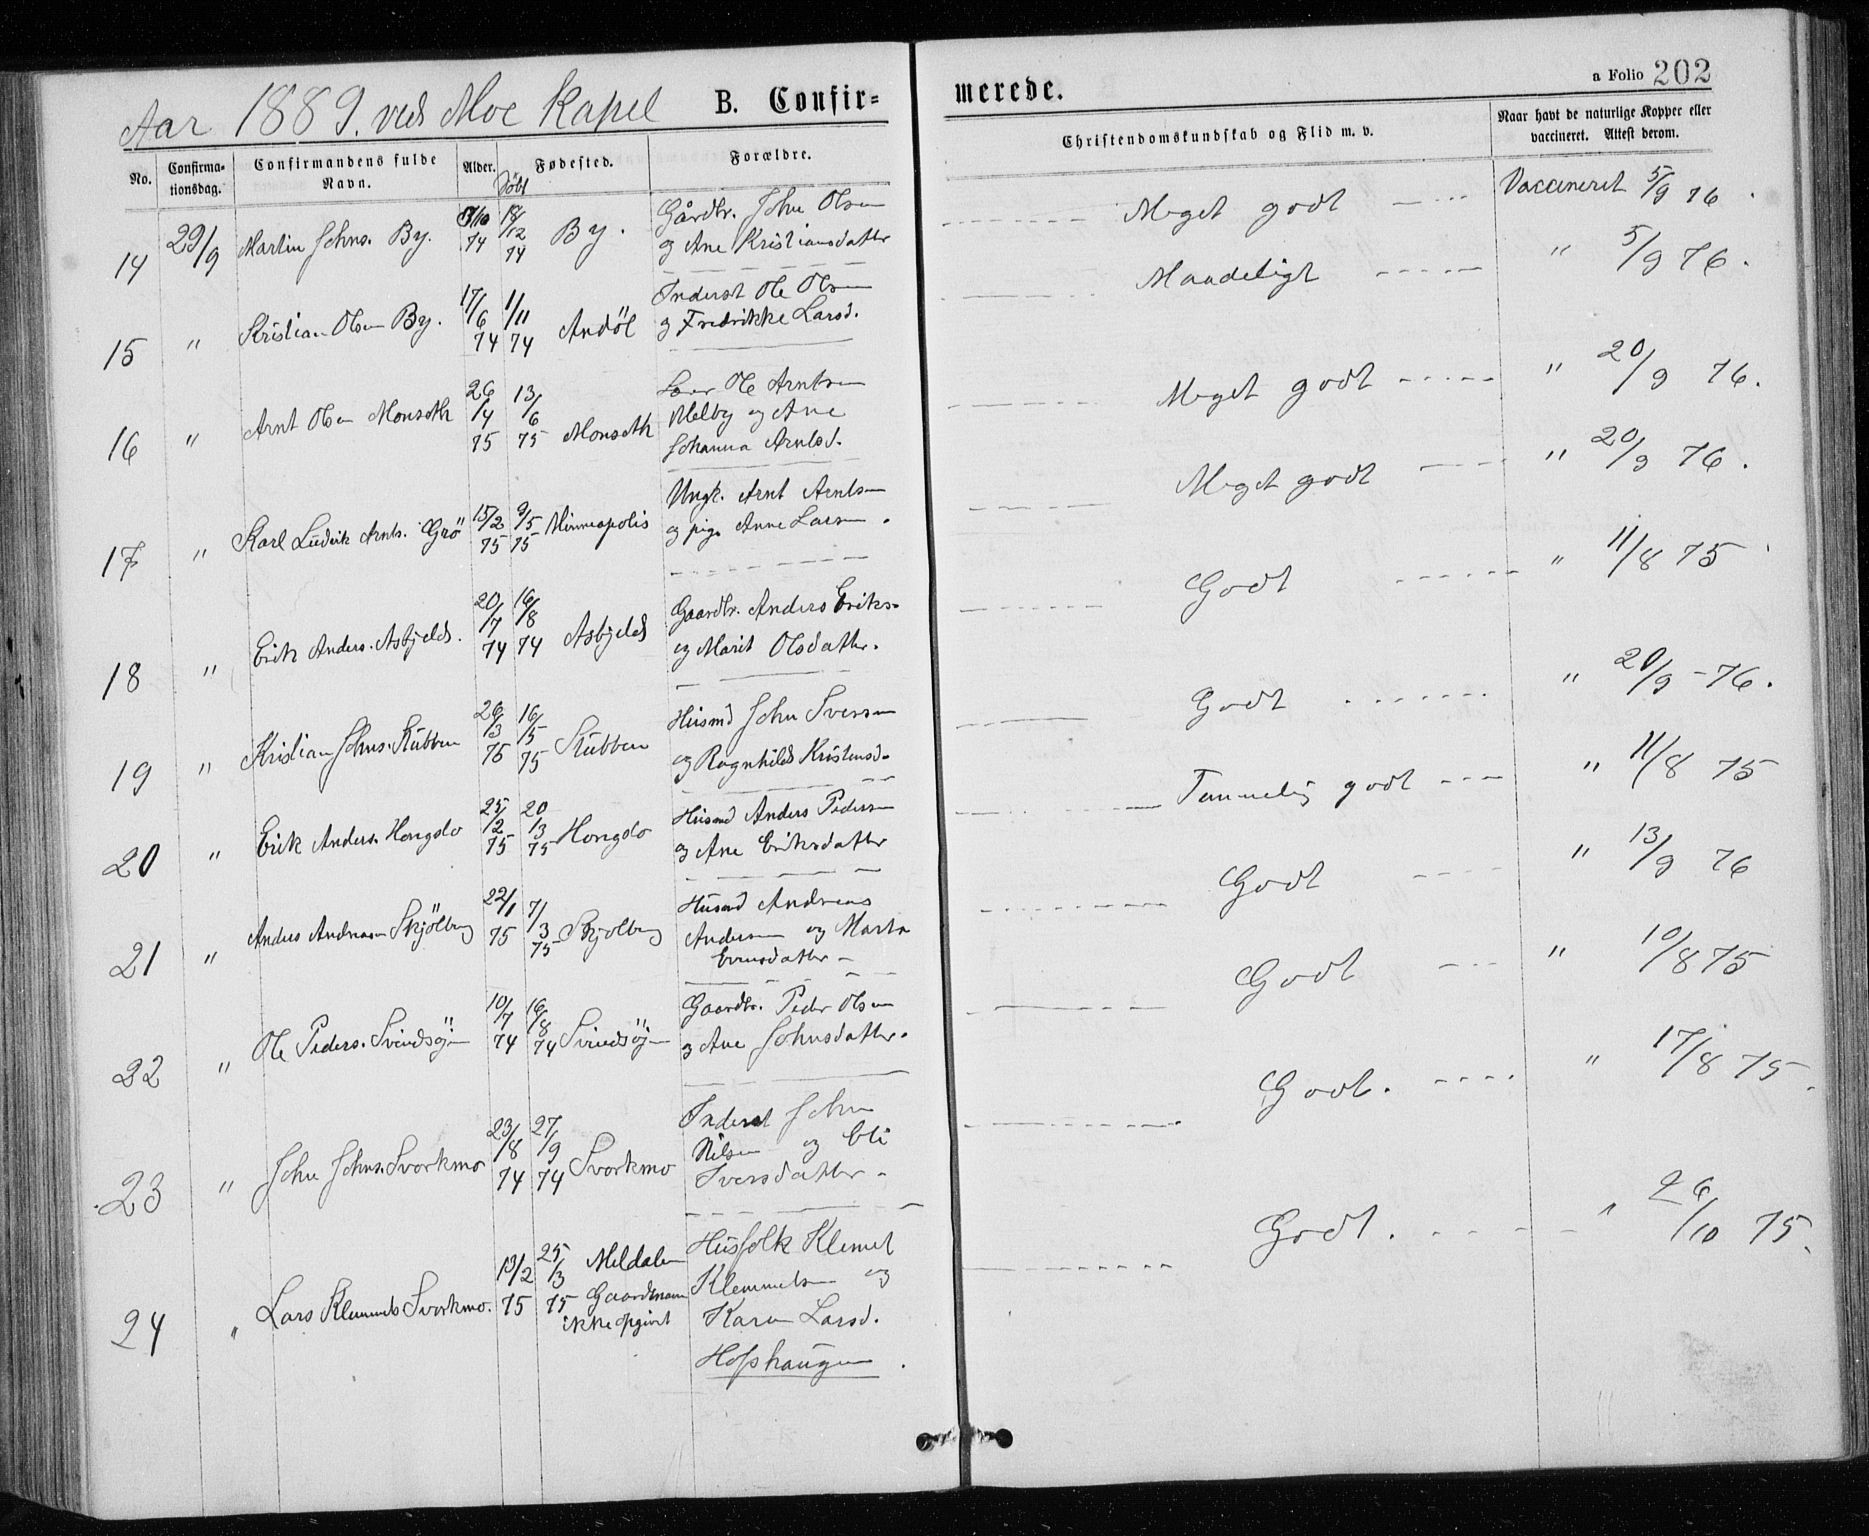 Aar 1889. ved Moe Kapel B. Confir-
merede. a Folio 202
No. Confirma-tionsdag. Confirmandens fulde Navn. Alder. Døbt Fødested. Forældre. Christendomskundskab og Flid m. v. Naar havt de naturlige Kopper eller vaccineret. Attest derom.
14 29/9 Martin Johns. By. 74 18/12 74 By. Gårdbr. John Olsen
og Ane Kristiansdatter Meget godt Vaccineret 5/9 76
15 " Kristian Olsen By. 17/6 74 1/11 74 Andöl Inderst Ole Olsen
og Fredrikke Larsd. Maadeligt " 5/9 76.
16 " Arnt Olsen Monseth 26/4 75 13/6 75 Monseth Ole Arntsen
Melby og Ane
Johanna Arntsd. Meget godt " 20/9 76.
17 " Karl Ludvik Arnts. Grö 15/2 75 9/5 75 Minneapolis Ungk. Arnt Arntsen
og pige Anne Larsen. Meget godt " 20/9 76.
18 " Erik Anders. Asbjelds. 20/7 74 16/8 74 Asbjelds Gaardbr. Anders Eriks.
og Marit Olsdatter. Godt " 11/8 75
19 " Kristian Johns. Stubben 26/3 75 16/5 75 Stubben Husmd John Iversen
og Ragnhild Kristensd. Godt " 20/9 - 76.
20 " Erik Anders. Hongslo 25/2 75 20/3 75 Hongslo Husmd Anders Pedersen
og Ane Eriksdatter Temmelig godt " 11/8 75
21 " Anders Andreasen Skjölberg 22/1 75 7/3 75 Skjolberg Husmd Andreas
Andersen og Marta
Evensdatter Godt " 13/9 76
22 " Ole Peders. Svindsöien 10/7 74 16/8 74 Svindsöien Gaardbr. Peder Olsen
og Ane Johnsdatter. Godt " 10/8 75
23 " John Johns. Svorkmo 23/8 74 27/9 74 Svorkmo Inderst John
Nilsen og Eli
Iversdatter Godt. " 17/8 75.
24 " Lars Klemmets Svorkmo. 13/2 75 25/3 75 Meldalen
Gaardsnavn
ikke opgivet Husfolk Klemet
Klemmetsen og
Karen Larsd.
Hofshaugen. Godt. " 26/10 75.